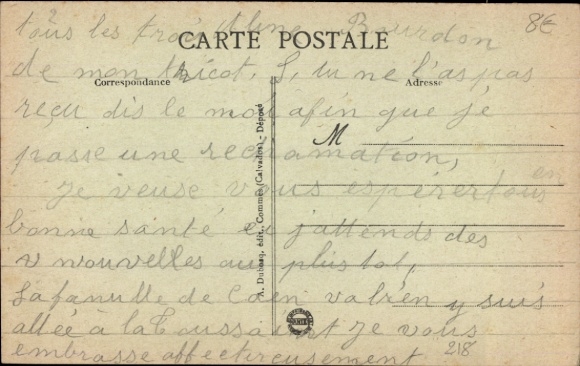 2
8€
tous les trois Aline Bourdon
CARTE POSTALE
de mon tricot. Si tu ne l'as pas
Correspondance
Adresse
reçu dis le moi afin que je
M
passe une reclamation,
je veuse vous espérer tous en
bonne santé et j'attends des
v nouvelles au plus tot,
La famille de Caen va bien y suis
allée à la Toussaint je vous
embrasse affectueusement
218
A. Dubosq, édit., Commes (Calvados) - Déposé